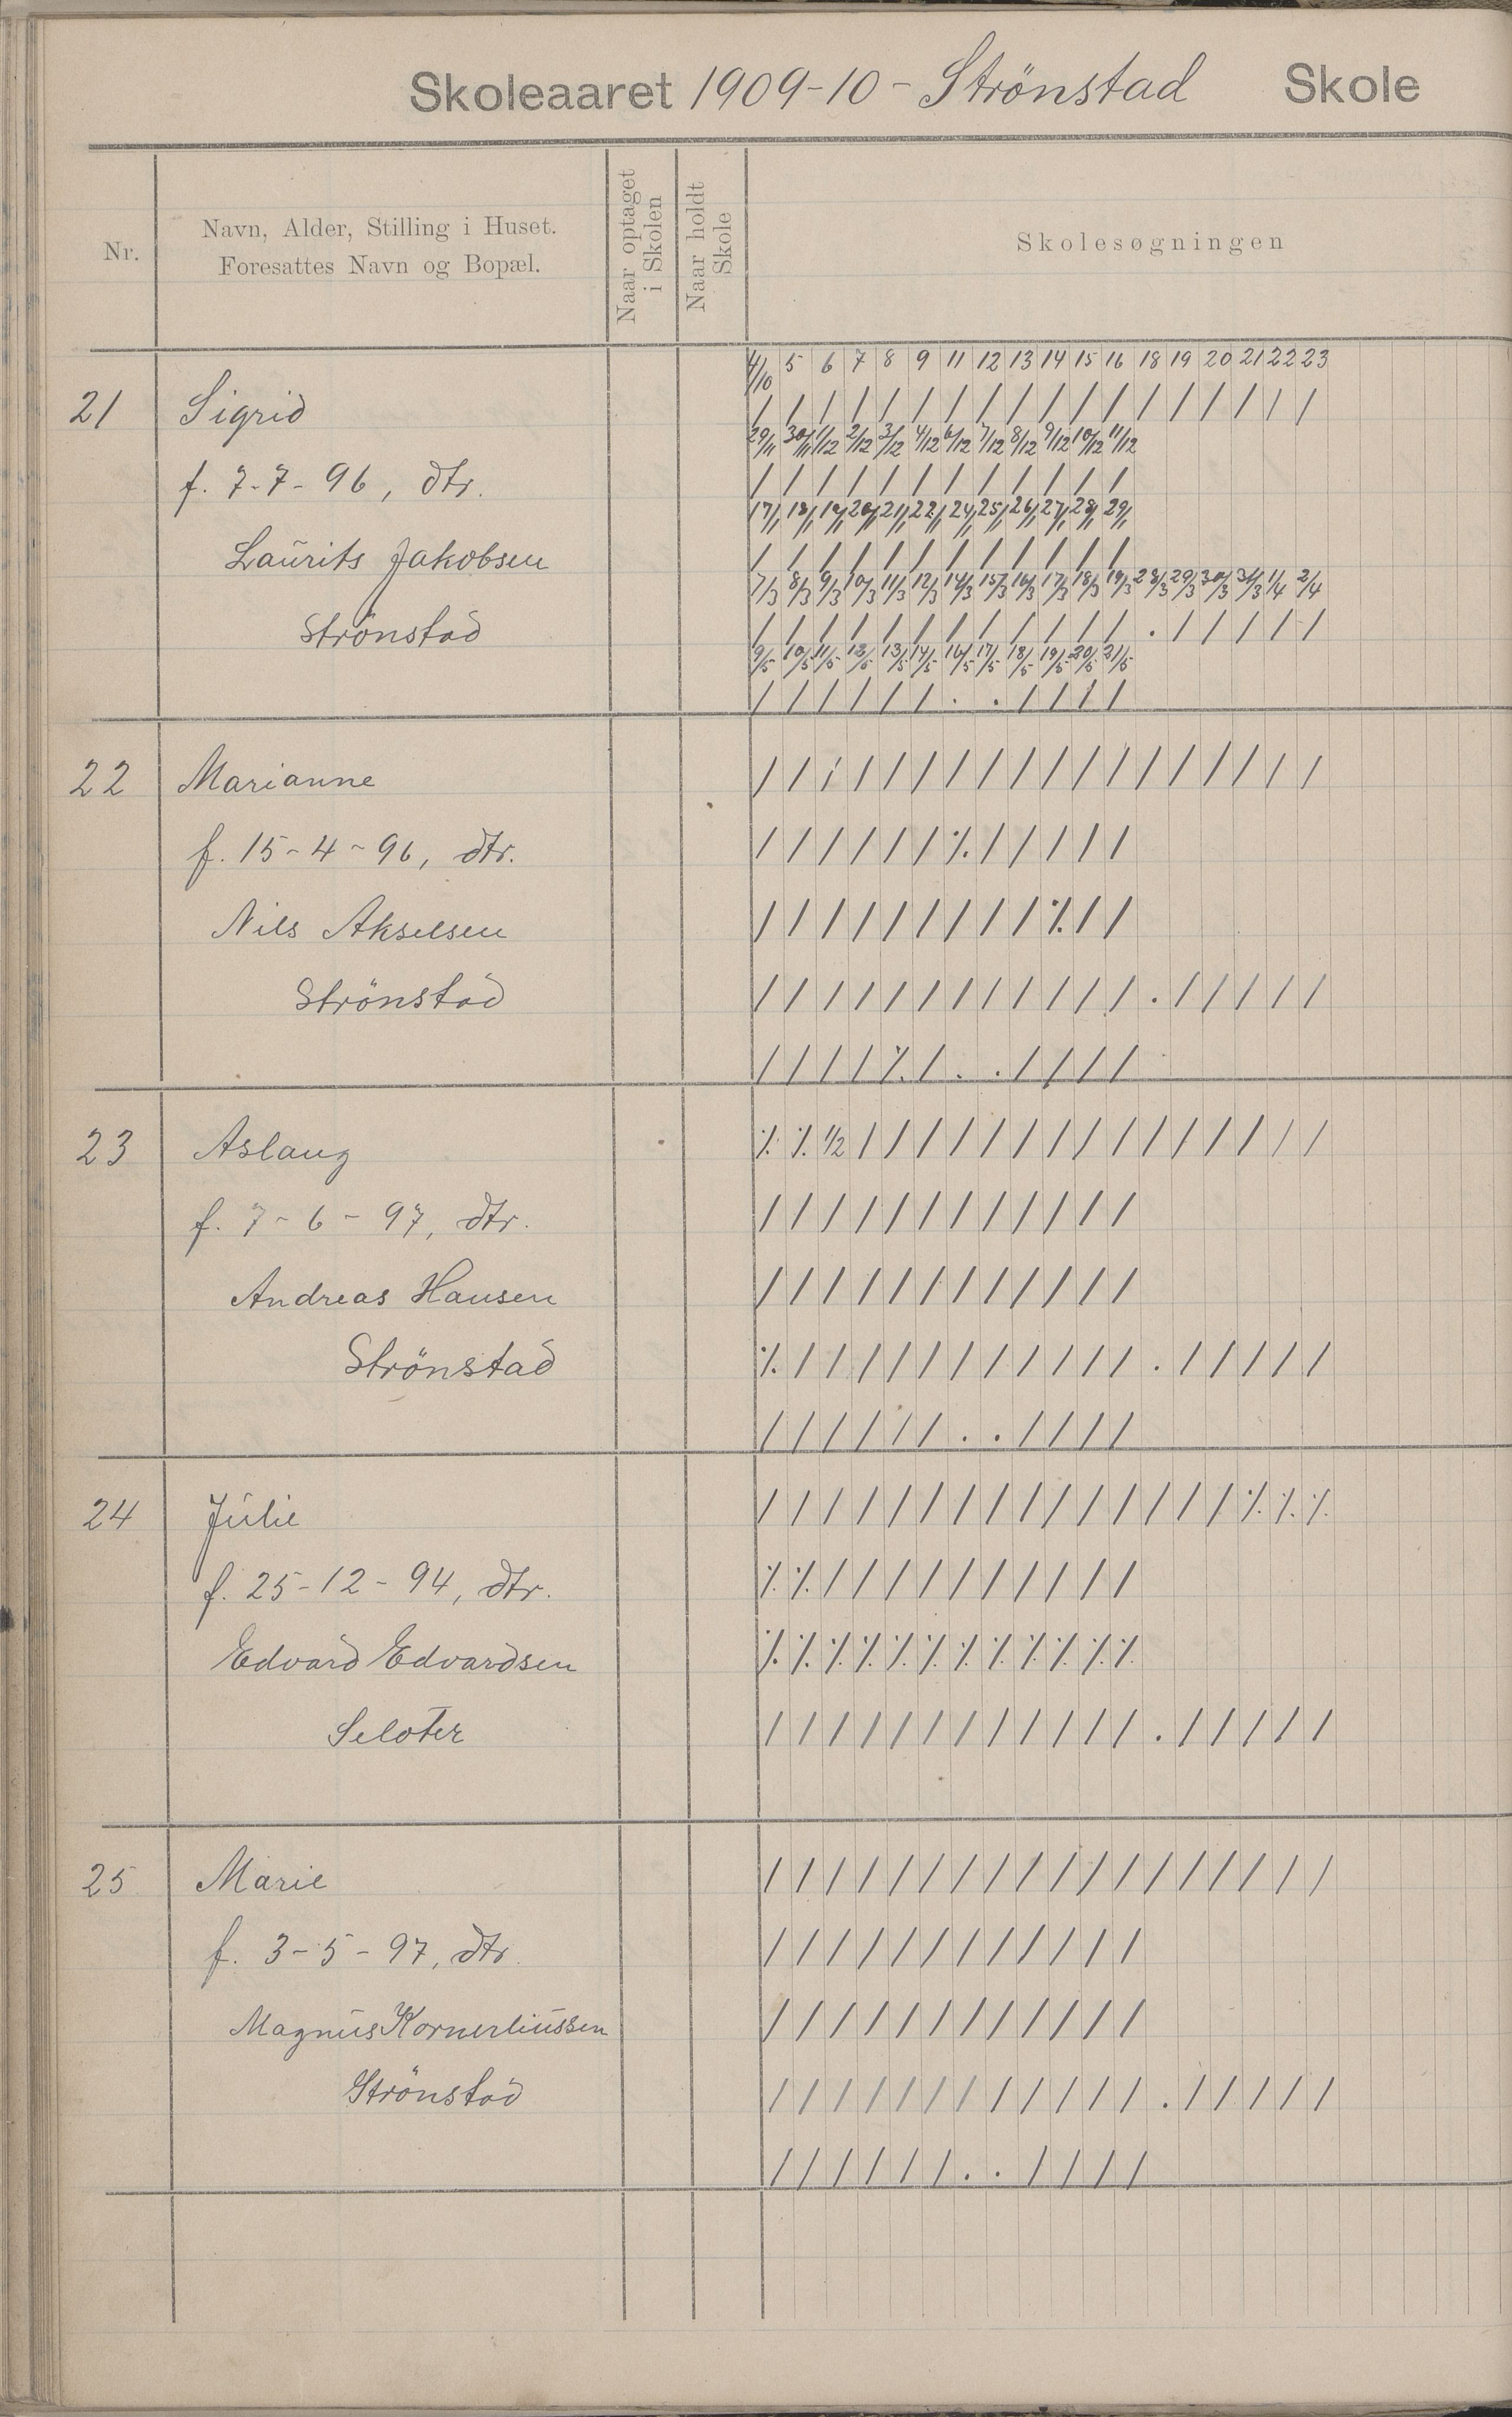 Skoleaaret 1909-10 - Strönstad Skole
Nr.
Navn, Alder, Stilling i Huset.
Foresattes Navn og Bopæl.
Naar optaget
i Skolen
Naar holdt
Skole
Skolesøgningen
4/10 5 6 7 8 9 11 12 13 14 15 16 18 19 20 21 22 23
21 Sigrid / / / / / / / / / / / / / / / / / /
29/11 30/11 1/12 2/12 3/12 4/12 6/12 7/12 8/12 9/12 10/12 11/12
f. 7-7-96, dtr. / / / / / / / / / / / /
17/1 18/1 19/1 20/1 21/1 22/1 24/1 25/1 26/1 27/1 28/1 29/1
Laurits Jakobsen / / / / / / / / / / / /
7/3 8/3 9/3 10/3 11/3 12/3 14/3 15/3 16/3 17/3 18/3 19/3 28/3 29/3 30/3 31/3 1/4 2/4
Strönstad / / / / / / / / / / / / . / / / / /
9/5 10/5 11/5 12/5 13/5 14/5 16/5 17/5 18/5 19/5 20/5 21/5
/ / / / / / . . / / / /
22 Marianne / / / / / / / / / / / / / / / / / /
f. 15-4-96, dtr. / / / / / / ⁒ / / / / /
Nils Akselsen / / / / / / / / / ⁒ / /
Strönstad / / / / / / / / / / / / . / / / / /
/ / / / ⁒ / . . / / / /
23 Aslaug ⁒ ⁒ 1/2 / / / / / / / / / / / / / / /
f. 7-6-97, dtr. / / / / / / / / / / / /
Andreas Hansen / / / / / / / / / / / /
Strönstad ⁒ / / / / / / / / / / / . / / / / /
/ / / / / / . . / / / /
24 Julie / / / / / / / / / / / / / / / ⁒ ⁒ ⁒
f. 25-12-94, dtr. ⁒ ⁒ / / / / / / / / / /
Edvard Edvardsen ⁒ ⁒ ⁒ ⁒ ⁒ ⁒ ⁒ ⁒ ⁒ ⁒ ⁒ ⁒
Seloter / / / / / / / / / / / / . / / / / /
25 Marie / / / / / / / / / / / / / / / / / /
f. 3-5-97, dtr. / / / / / / / / / / / /
Magnus Kornerliussen / / / / / / / / / / / /
Strönstad / / / / / / / / / / / / . / / / / /
/ / / / / / . . / / / /